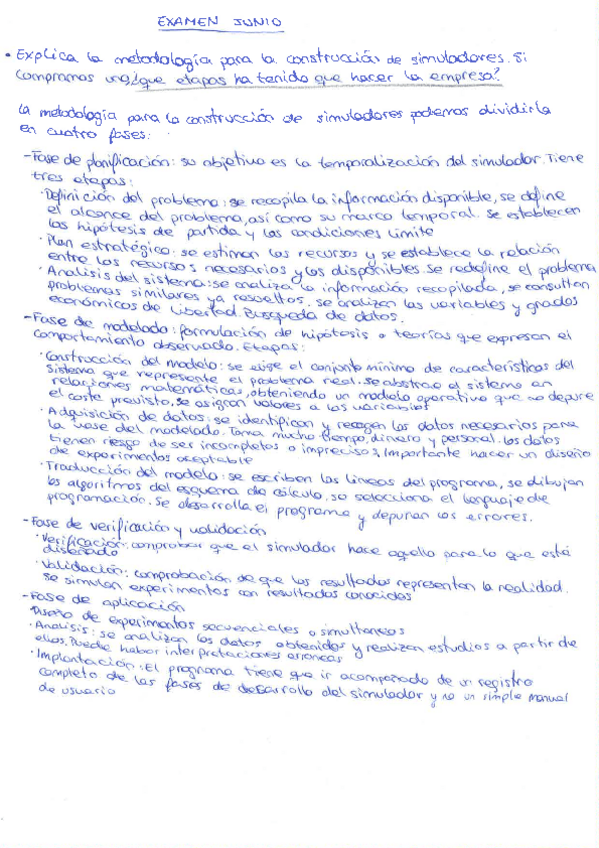 EXAMEN JUNIO
• Explica la metodología para la construcción de simuladores. Si
compramos uno ¿que etapas ha tenido que hacer la empresa?
La metodología para la construcción de simuladores podemos dividirla
en cuatro fases:
- Fase de planificación: su objetivo es la temporalización del simulador. Tiene
tres etapas:
· Definición del problema: se recopila la información disponible, se define
el alcance del problema, así como su marco temporal. Se establecen
las hipótesis de partida y las condiciones límite
· Plan estratégico: se estiman los recursos y se establece la relación
entre los recursos necesarios y los disponibles. Se redefine el problema
· Analisis del sistema: se analiza la información recopilada, se consultan
problemas similares ya resueltos. Se analizan las variables y grados
económicos de libertad. Busqueda de datos.
- Fase de modelado: formulación de hipótesis o teorías que expresan el
comportamiento observado. Etapas:
· Construcción del modelo: se elige el conjunto mínimo de características del
sistema que represente el problema real. Se abstrae el sistema en
relaciones matemáticas, obteniendo un modelo operativo que no
el coste previsto, se asignan valores a las variables
· Adquisición de datos: se identifican y recogen los datos necesarios para
la base del modelado. Toma mucho tiempo, dinero y personal. Los datos
tienen riesgo de ser incompletos o imprecisos, Importante hacer un diseño
de experimentos aceptable
· Traducción del modelo: se escriben las lineas del programa, se dibujan
los algoritmos del esquema de cálculo, se selecciona el lenguaje de
programación. Se desarrolla el programa y depuran los errores.
- Fase de verificación y validación
· Verificación: comprobar que el simulador hace aquello para lo que está
diseñado
· Validación: comprobación de que los resultados representan la realidad.
Se simulan experimentos con resultados conocidos
- Fase de aplicación
Diseño de experimentos secuenciales o simultaneos
· Analisis: se analizan los datos obtenidos y realizan estudios a partir de
ellos. Puede haber interpretaciones erroneas
· Implantación: El programa tiene que ir acompañado de un registro
completo de las fases de desarrollo del simulador y no un simple manual
de usuario